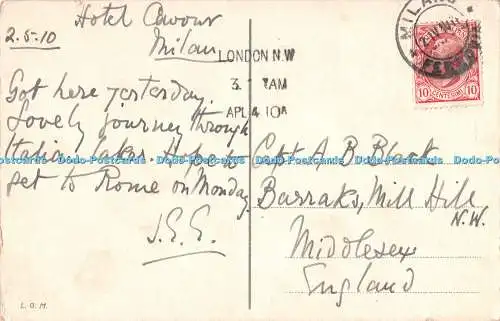 Hotel Cavour
2.5.10
Milan
Got here yesterday.
Lovely journey through
Italian lakes. Hope to
get to Rome on Monday
J.E.E.
L.G.M.
LONDON N.W
3. 7AM
APL 4 10A
MILANO
10 CENTESIMI 10
Capt A B Black
Barraks, Mill Hill
N.W.
Middlesex
England
Postcards-Postcards Postcards-Postcards Postcards-Postcards Postcards-Postcards